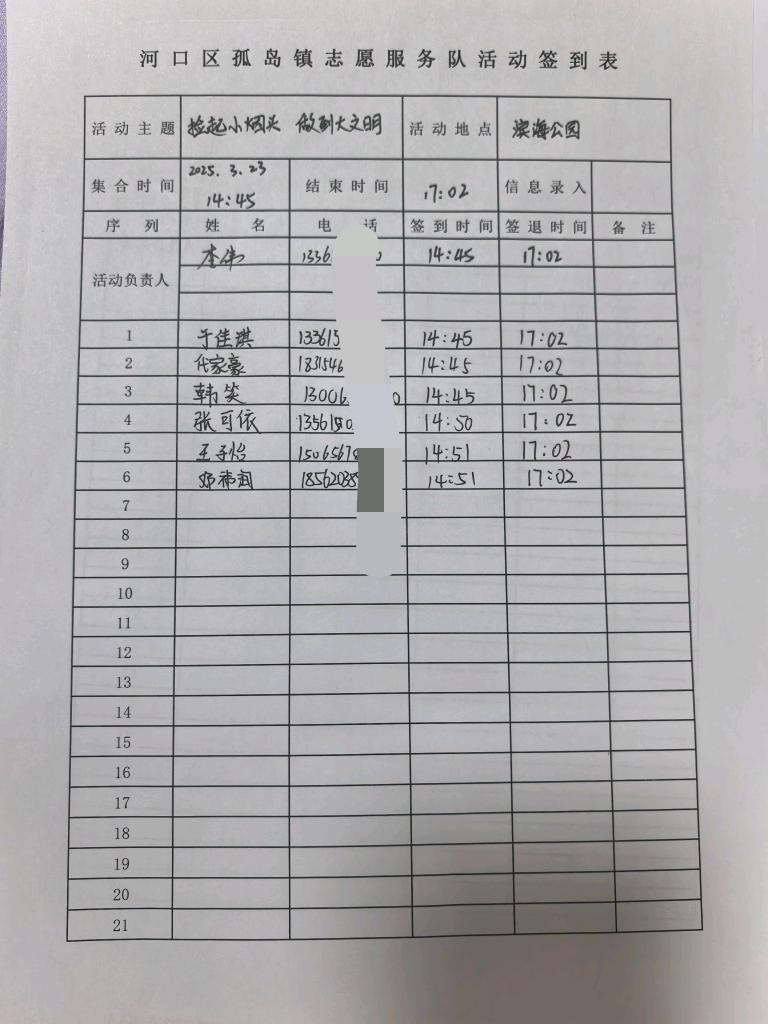 河口区孤岛镇志愿服务队活动签到表
活动主题 捡起小烟头 做到大文明 活动地点 滨海公园
集合时间 2025.3.23 14:45 结束时间 17:02 信息录入
序列 姓名 电话 签到时间 签退时间 备注
活动负责人 李伟 1336 0 14:45 17:02
1 于佳淇 133615 14:45 17:02
2 代家豪 1831546 14:45 17:02
3 韩笑 13006 0 14:45 17:02
4 张可依 1356150 14:50 17:02
5 王子怡 1506567 14:51 17:02
6 18562038 14:51 17:02
7
8
9
10
11
12
13
14
15
16
17
18
19
20
21